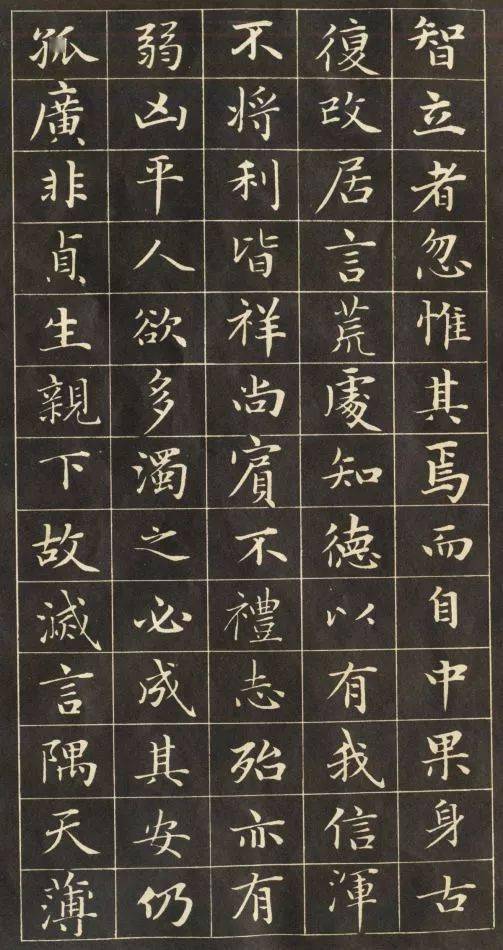 智立者忽惟其焉而自中果身古
復改居言荒處知德以有我信渾
不將利皆祥尚賓不禮志殆亦有
弱凶平人欲多濁之必成其安仍
孤廣非貞生親下故滅言隅天薄